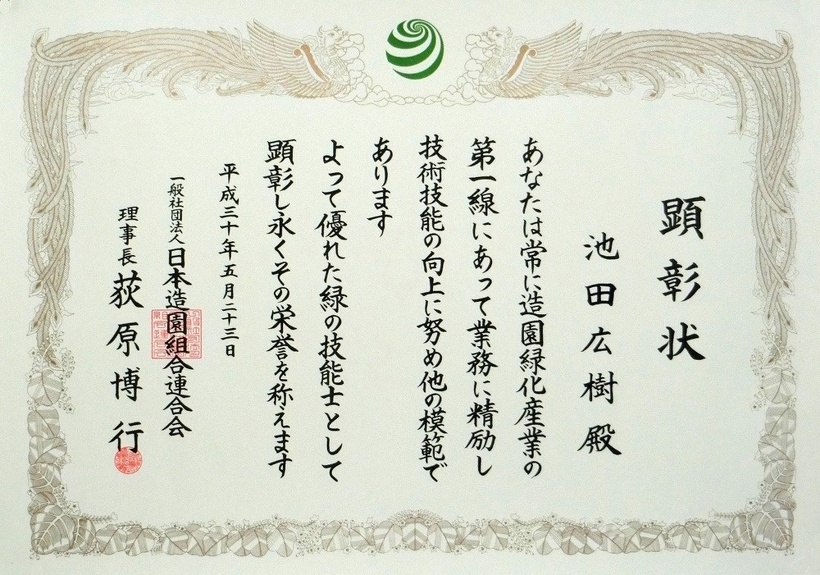 顕彰状
池田広樹殿
あなたは常に造園緑化産業の
第一線にあって業務に精励し
技術技能の向上に努め他の模範で
あります
よって優れた緑の技能士として
顕彰し永くその栄誉を称えます
平成三十年五月二十三日
一般社団法人日本造園組合連合会
理事長荻原博行